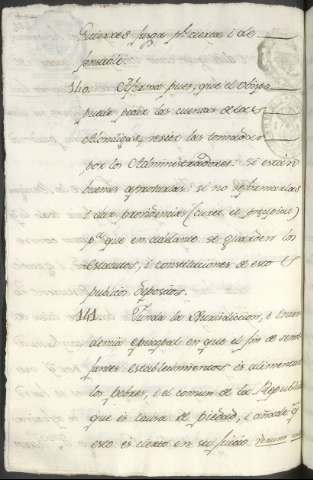 Guierres juzga pr. cierta i de
fensible.
140. Afirma pues, que el Obispo
puede pedir las cuentas de las
Alondigas, rever las tomadas
por los Administradores: se están
buenas aprobarlas: si no reformarlas
i dar providencias (
pa. que en adelante se guarden los
estatutos, i constituciones de estos
publicos depositos.
141. Funda la Jurisdiccion, i
demia episcopal en que el fin de seme
jantes establecimientos es alimentar
los pobres, i el comun de la Republica
que es causa de piedad, i añade qe.
esto es cierto en su juicio verum